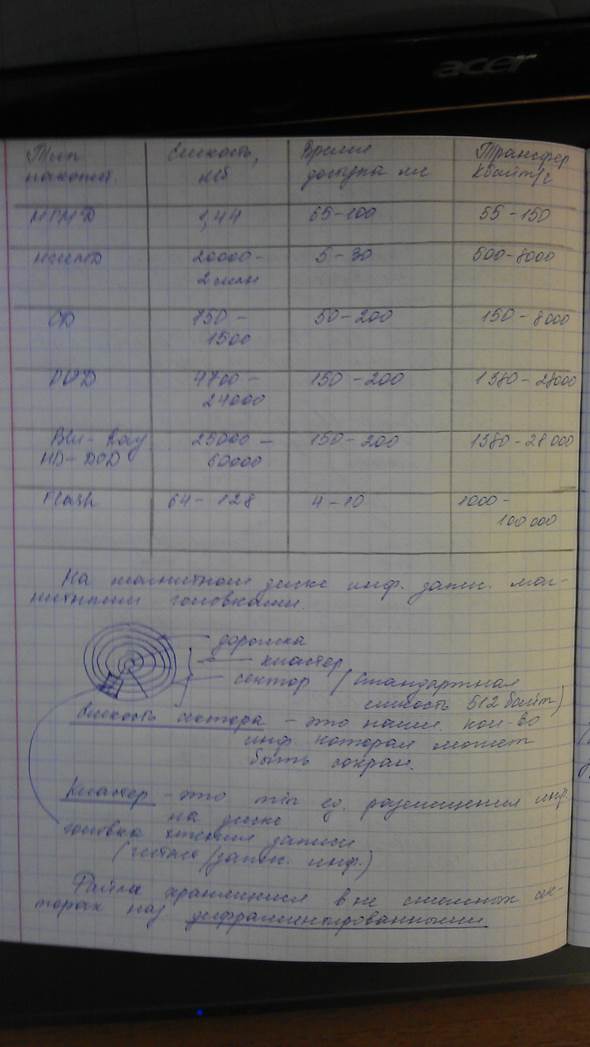 acer
Тип накопит. | Емкость, Мб | Время доступа мс | Трансфер Кбайт/с
НГМД | 1,44 | 65-100 | 55-150
НЖМД | 20000 - 2 млн | 5-30 | 500-8000
CD | 750 - 1500 | 50-200 | 150-8000
DVD | 4700 - 24000 | 150-200 | 1380-28000
Blu-Ray HD-DVD | 25000 - 60000 | 150-200 | 1380-28000
Flash | 64-128 | 4-10 | 1000 - 100 000
На магнитном диске инф. запис. маг-
нитными головками.
дорожка
кластер
сектор (стандартная
емкость 512 байт)
Емкость сектора - это наим. кол-во
инф. которая может
быть сохран.
Кластер - это min ед. размещения инф.
на диске
головка чтения записи
(чтение/запис. инф.)
Файлы хранящиеся в не смежных сек-
торах наз